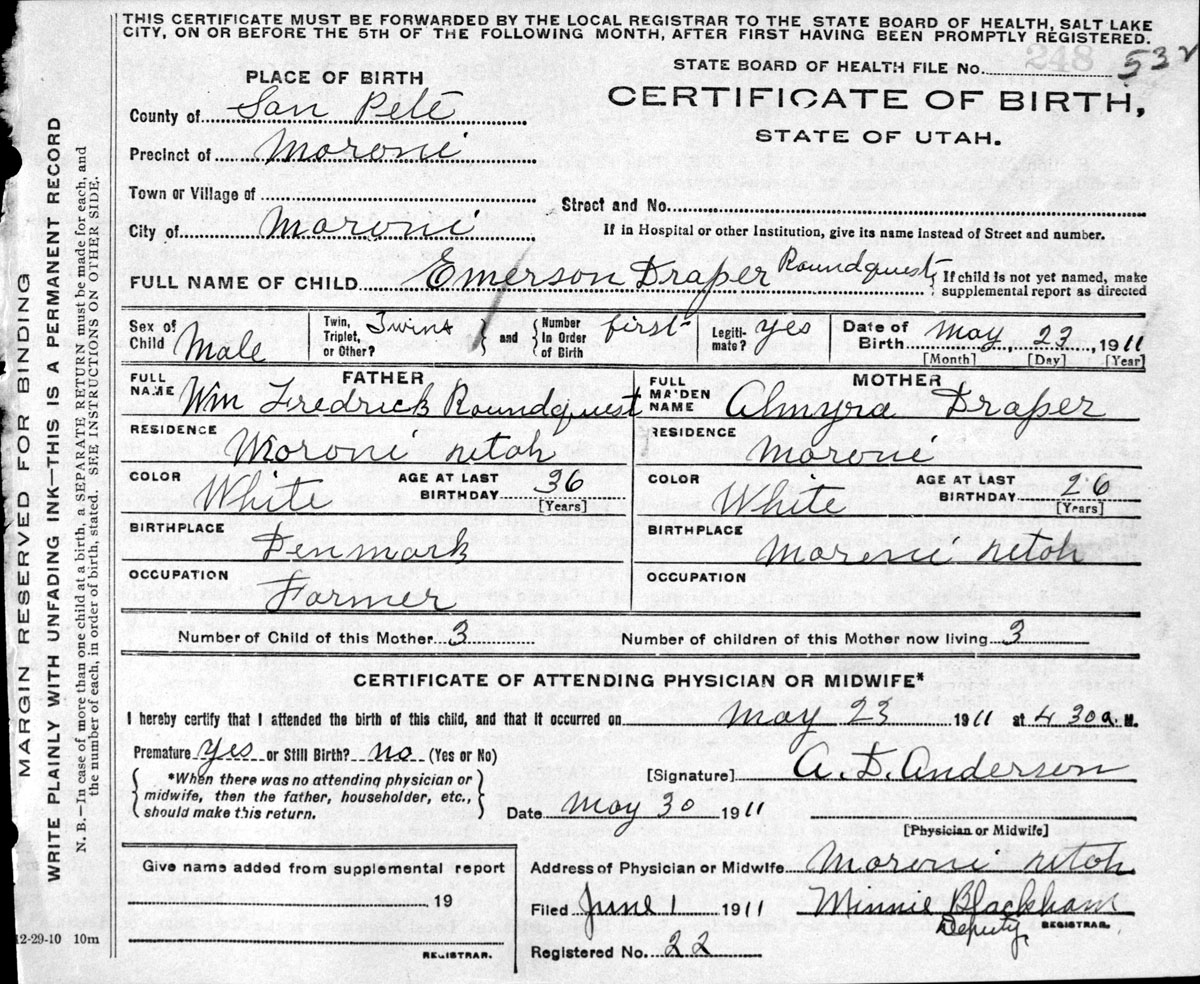 THIS CERTIFICATE MUST BE FORWARDED BY THE LOCAL REGISTRAR TO THE STATE BOARD OF HEALTH, SALT LAKE
CITY, ON OR BEFORE THE 5TH OF THE FOLLOWING MONTH, AFTER FIRST HAVING BEEN PROMPTLY REGISTERED.
STATE BOARD OF HEALTH FILE No. 248 532
PLACE OF BIRTH
CERTIFICATE OF BIRTH,
STATE OF UTAH.
County of San Pete
Precinct of Moroni
Town or Village of
Street and No.
City of Moroni
If in Hospital or other Institution, give its name instead of Street and number.
FULL NAME OF CHILD Emerson Draper Roundquest { If child is not yet named, make supplemental report as directed
Sex of Child Male
Twin, Triplet, or Other? Twins } and { Number In Order of Birth first
Legiti-mate? yes
Date of Birth May 23, 1911
[Month] [Day] [Year]
FATHER
FULL NAME Wm Fredrick Roundquest
RESIDENCE Moroni Utah
COLOR White AGE AT LAST BIRTHDAY 36 [Years]
BIRTHPLACE Denmark
OCCUPATION Farmer
MOTHER
FULL MAIDEN NAME Almyra Draper
RESIDENCE Moroni
COLOR White AGE AT LAST BIRTHDAY 26 [Years]
BIRTHPLACE Moroni Utah
OCCUPATION
Number of Child of this Mother 3 Number of children of this Mother now living 3
CERTIFICATE OF ATTENDING PHYSICIAN OR MIDWIFE*
I hereby certify that I attended the birth of this child, and that it occurred on May 23 1911 at 4 30 a. M.
Premature yes or Still Birth? no (Yes or No)
{ *When there was no attending physician or
midwife, then the father, householder, etc.,
should make this return. }
[Signature] A. D. Anderson
Date May 30 1911
[Physician or Midwife]
Give name added from supplemental report
19
REGISTRAR.
Address of Physician or Midwife Moroni Utah
Filed June 1 1911 Minnie Blackham
Deputy REGISTRAR.
Registered No. 22
12-29-10 10m
MARGIN RESERVED FOR BINDING
WRITE PLAINLY WITH UNFADING INK—THIS IS A PERMANENT RECORD
N. B.—In case of more than one child at a birth, a SEPARATE RETURN must be made for each, and
the number of each, in order of birth, stated. SEE INSTRUCTIONS ON OTHER SIDE.